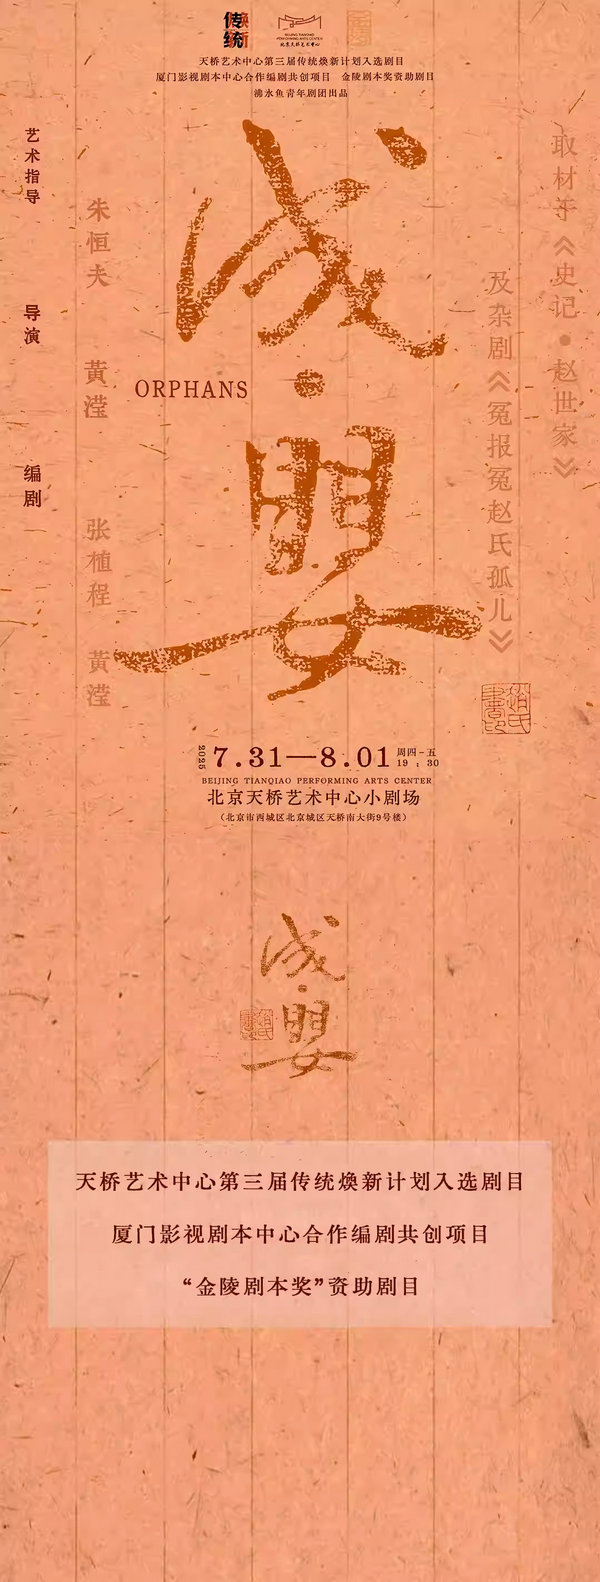 传统
焕新
BEIJING TIANQIAO
PERFORMING ARTS CENTER
北京天桥艺术中心
天桥艺术中心第三届传统焕新计划入选剧目
厦门影视剧本中心合作编剧共创项目 金陵剧本奖资助剧目
沸水鱼青年剧团出品
取材于《史记·赵世家》
及杂剧《冤报冤赵氏孤儿》
成·婴
ORPHANS
艺术指导
朱恒夫
导演
黄滢
编剧
张植程 黄滢
2025
7.31—8.01
周四-五
19:30
BEIJING TIANQIAO PERFORMING ARTS CENTER
北京天桥艺术中心小剧场
（北京市西城区北京城区天桥南大街9号楼）
成·婴
天桥艺术中心第三届传统焕新计划入选剧目
厦门影视剧本中心合作编剧共创项目
“金陵剧本奖”资助剧目